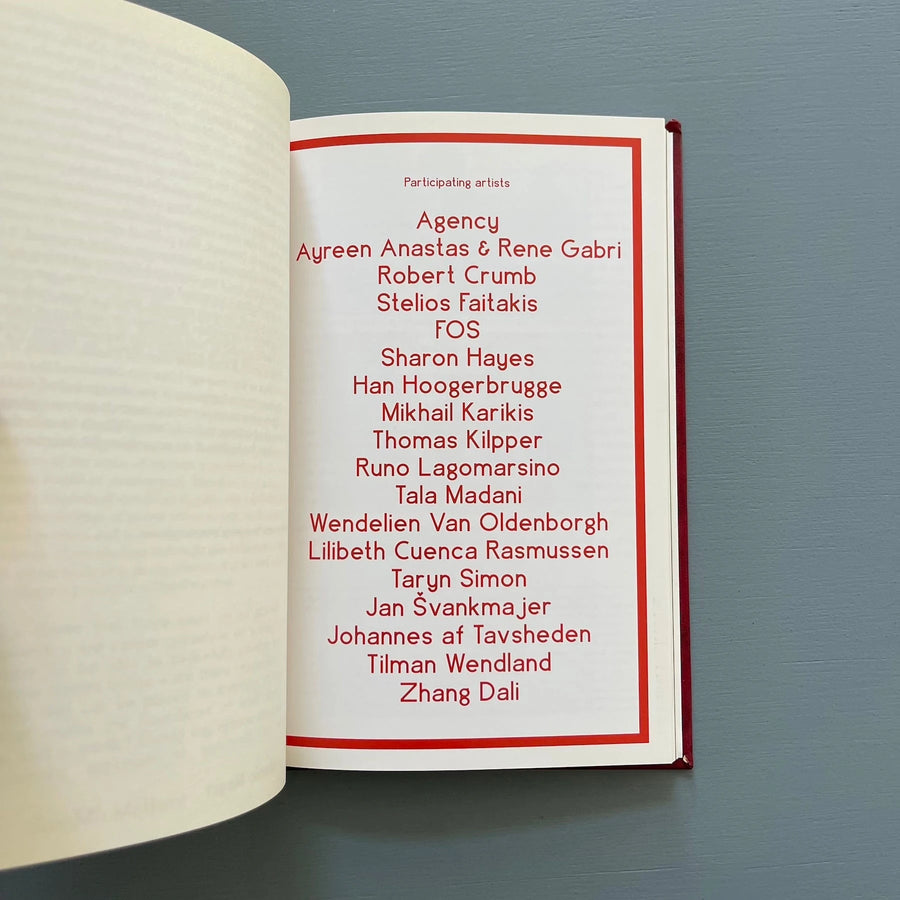 Participating artists
Agency
Ayreen Anastas & Rene Gabri
Robert Crumb
Stelios Faitakis
FOS
Sharon Hayes
Han Hoogerbrugge
Mikhail Karikis
Thomas Kilpper
Runo Lagomarsino
Tala Madani
Wendelien Van Oldenborgh
Lilibeth Cuenca Rasmussen
Taryn Simon
Jan Švankmajer
Johannes af Tavsheden
Tilman Wendland
Zhang Dali